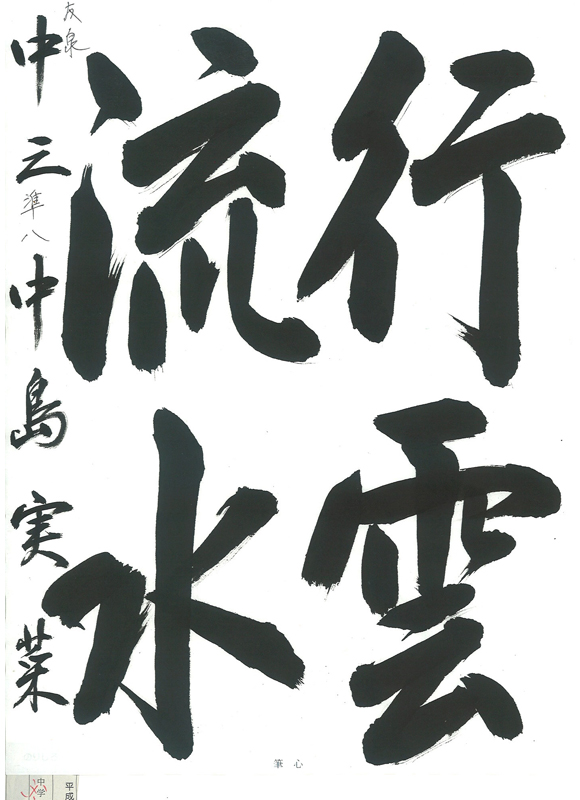 行雲
流水
友泉
中三準八中島実菜
心筆
中学
平成